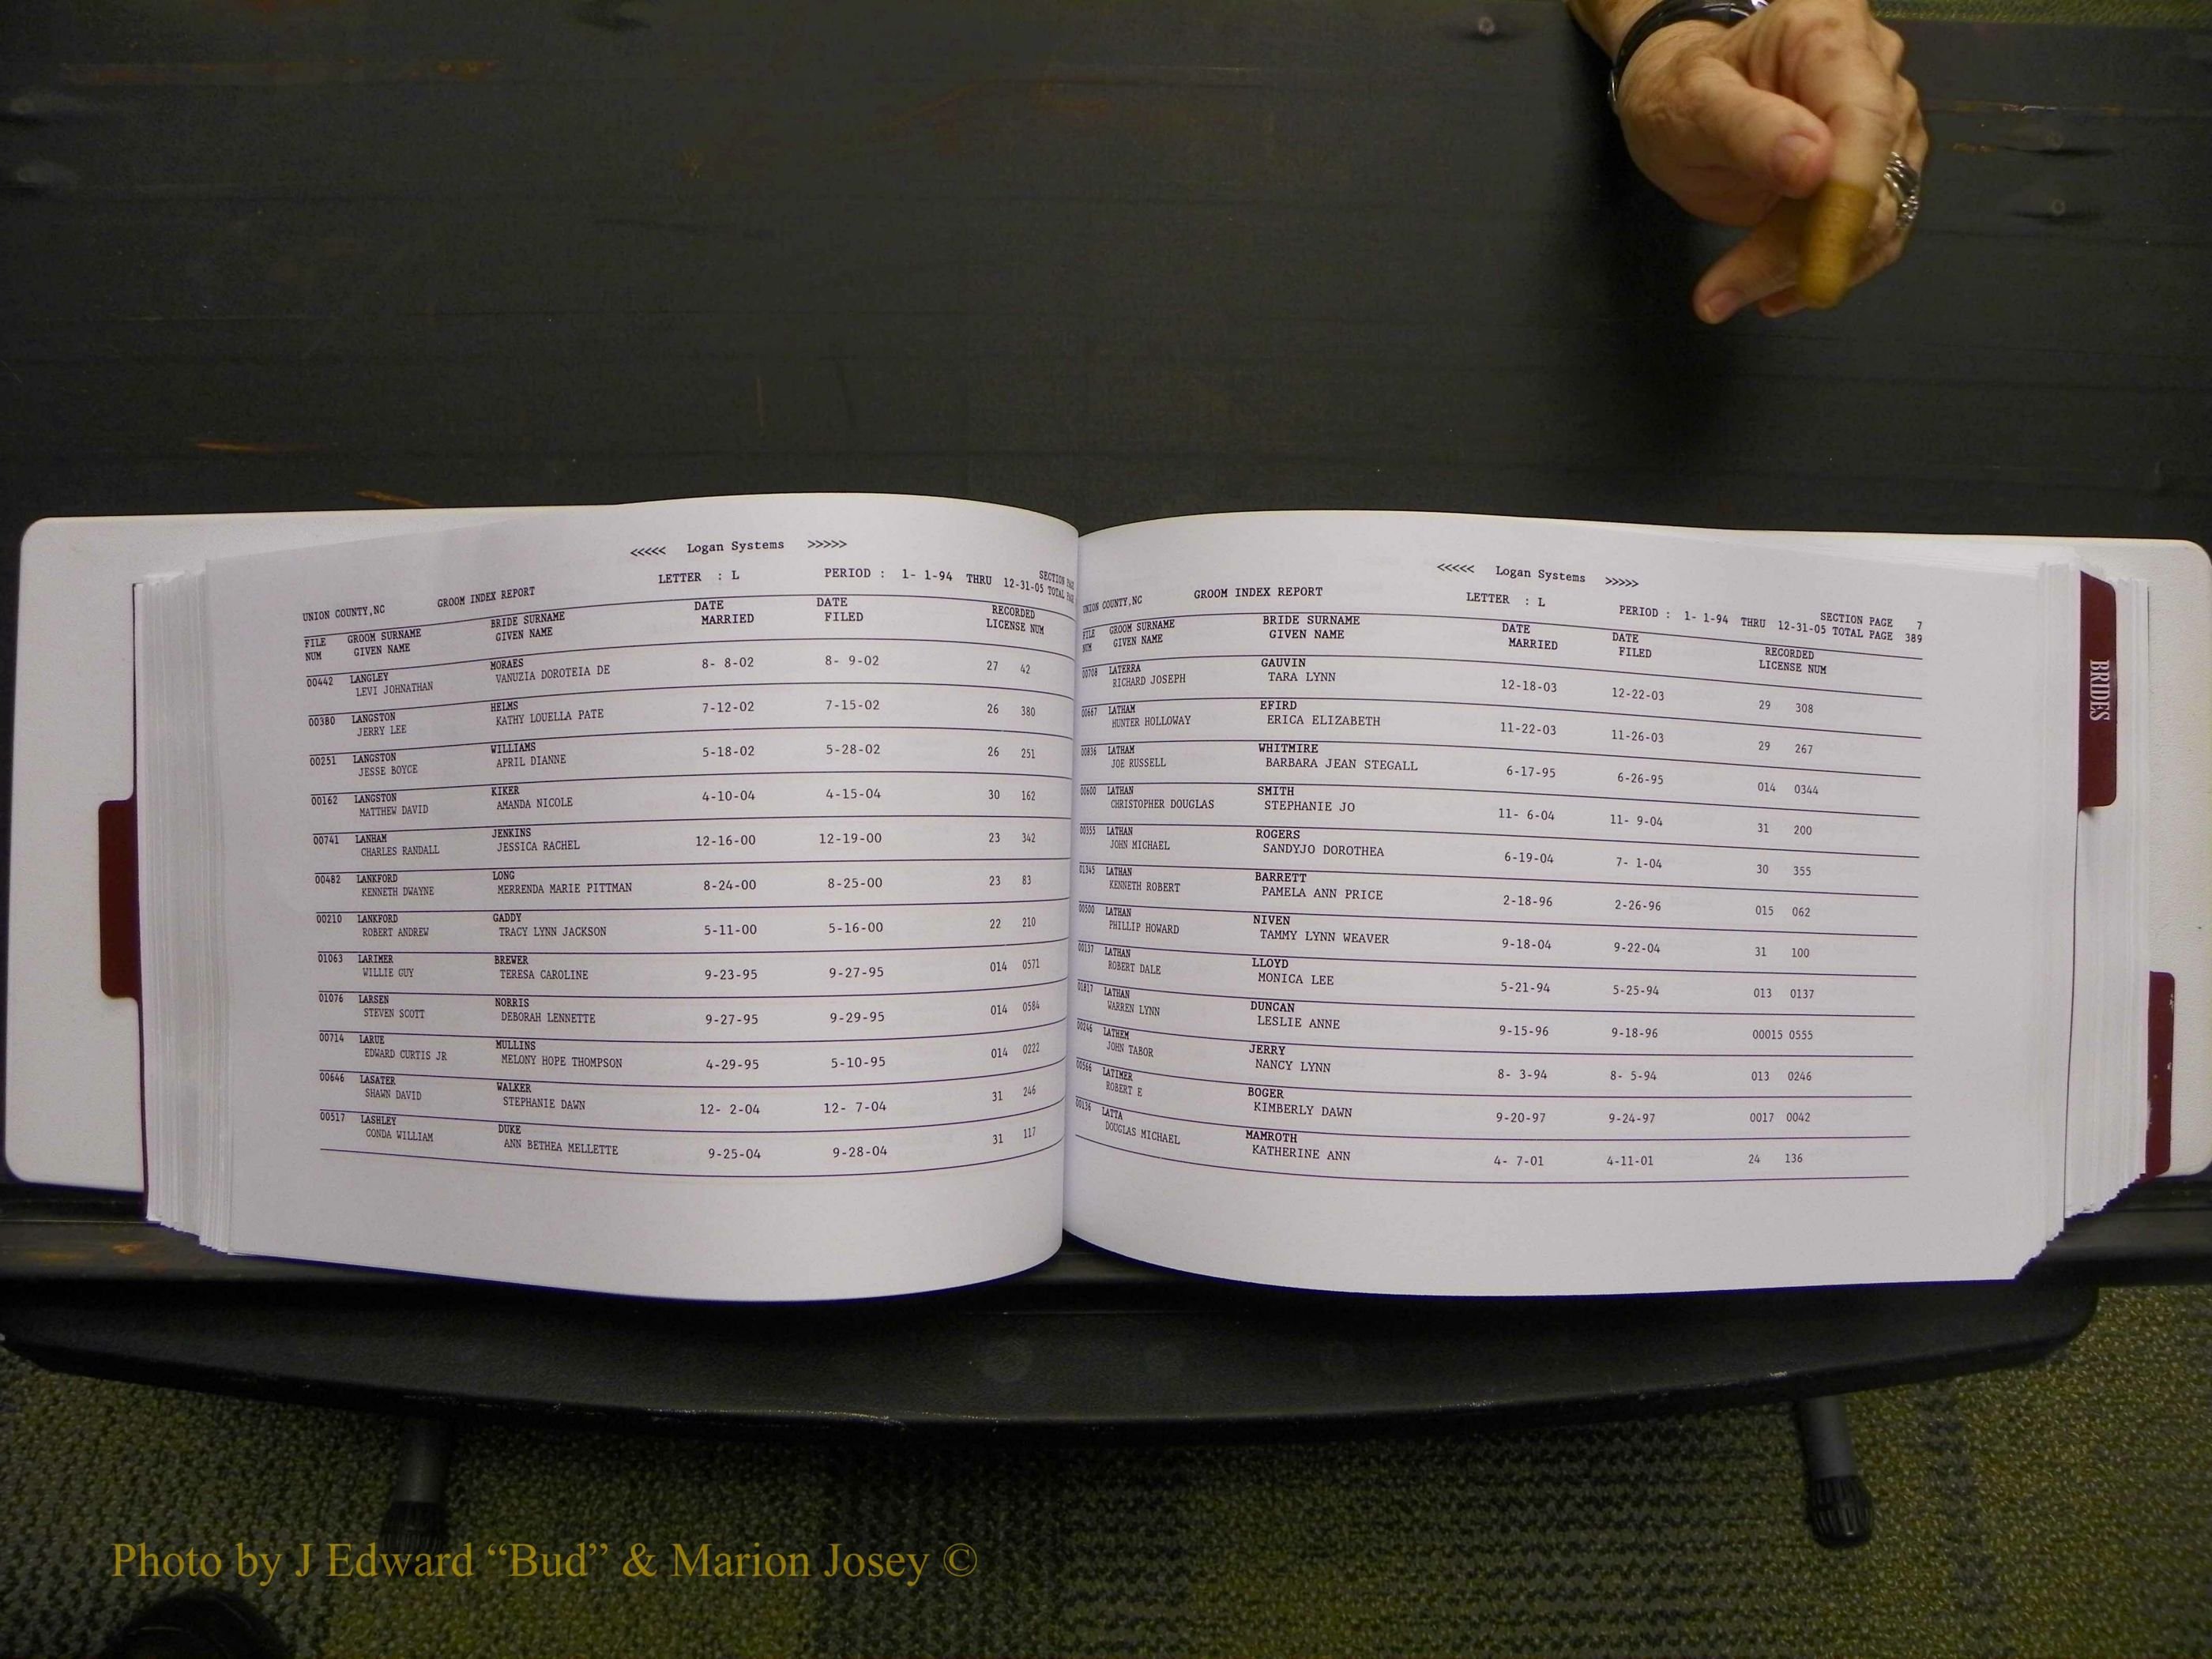 <<<<< Logan Systems >>>>>
LETTER : L PERIOD : 1- 1-94 THRU 12-31-05 SECTION
TOTAL
UNION COUNTY,NC GROOM INDEX REPORT
FILE GROOM SURNAME BRIDE SURNAME DATE DATE RECORDED
NUM GIVEN NAME GIVEN NAME MARRIED FILED LICENSE NUM
00442 LANGLEY MORAES 8- 8-02 8- 9-02 27 42
LEVI JOHNATHAN VANUZIA DOROTEIA DE
00380 LANGSTON HELMS 7-12-02 7-15-02 26 380
JERRY LEE KATHY LOUELLA PATE
00251 LANGSTON WILLIAMS 5-18-02 5-28-02 26 251
JESSE BOYCE APRIL DIANNE
00162 LANGSTON KIKER 4-10-04 4-15-04 30 162
MATTHEW DAVID AMANDA NICOLE
00741 LANHAM JENKINS 12-16-00 12-19-00 23 342
CHARLES RANDALL JESSICA RACHEL
00482 LANKFORD LONG 8-24-00 8-25-00 23 83
KENNETH DWAYNE MERRENDA MARIE PITTMAN
00210 LANKFORD GADDY 5-11-00 5-16-00 22 210
ROBERT ANDREW TRACY LYNN JACKSON
01063 LARIMER BREWER 9-23-95 9-27-95 014 0571
WILLIE GUY TERESA CAROLINE
01076 LARSEN NORRIS 9-27-95 9-29-95 014 0584
STEVEN SCOTT DEBORAH LENNETTE
00714 LARUE MULLINS 4-29-95 5-10-95 014 0222
EDWARD CURTIS JR MELONY HOPE THOMPSON
00646 LASATER WALKER 12- 2-04 12- 7-04 31 246
SHAWN DAVID STEPHANIE DAWN
00517 LASHLEY DUKE 9-25-04 9-28-04 31 117
CONDA WILLIAM ANN BETHEA MELLETTE
<<<<< Logan Systems >>>>>
LETTER : L PERIOD : 1- 1-94 THRU 12-31-05 SECTION PAGE 7
TOTAL PAGE 389
UNION COUNTY,NC GROOM INDEX REPORT
FILE GROOM SURNAME BRIDE SURNAME DATE DATE RECORDED
NUM GIVEN NAME GIVEN NAME MARRIED FILED LICENSE NUM
00708 LATERRA GAUVIN 12-18-03 12-22-03 29 308
RICHARD JOSEPH TARA LYNN
00667 LATHAM EFIRD 11-22-03 11-26-03 29 267
HUNTER HOLLOWAY ERICA ELIZABETH
00836 LATHAM WHITMIRE 6-17-95 6-26-95 014 0344
JOE RUSSELL BARBARA JEAN STEGALL
00600 LATHAN SMITH 11- 6-04 11- 9-04 31 200
CHRISTOPHER DOUGLAS STEPHANIE JO
00355 LATHAN ROGERS 6-19-04 7- 1-04 30 355
JOHN MICHAEL SANDYJO DOROTHEA
01345 LATHAN BARRETT 2-18-96 2-26-96 015 062
KENNETH ROBERT PAMELA ANN PRICE
00500 LATHAN NIVEN 9-18-04 9-22-04 31 100
PHILLIP HOWARD TAMMY LYNN WEAVER
00137 LATHAN LLOYD 5-21-94 5-25-94 013 0137
ROBERT DALE MONICA LEE
01817 LATHAN DUNCAN 9-15-96 9-18-96 00015 0555
WARREN LYNN LESLIE ANNE
00246 LATHEM JERRY 8- 3-94 8- 5-94 013 0246
JOHN TABOR NANCY LYNN
00566 LATIMER BOGER 9-20-97 9-24-97 0017 0042
ROBERT E KIMBERLY DAWN
00136 LATTA MAMROTH 4- 7-01 4-11-01 24 136
DOUGLAS MICHAEL KATHERINE ANN
BRIDES
Photo by J Edward “Bud” & Marion Josey ©